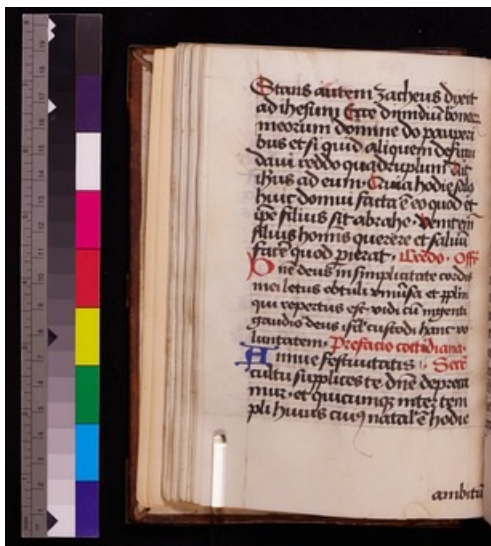 Stans autem zacheus dixit
ad ihesum Ecce dimidiu bonor
meorum domine do pauperi
bus et si quid aliquem defrau
davi reddo quadruplum Ait
ihus ad eum Quia hodie salus
huic domui facta e eo quod et
ipse filius sit abrahe venit em
filius hominis querere et salvu
facere quod perierat Credo Offr
Dne deus in simplicitate cordis
mei letus obtuli universa et pplm
qui repertus est vidi cu ingenti
gaudio deus isrl custodi hanc vo
luntatem Prefacio cottidiana
Annue festivitatis Secr
cultu supplices te dne depreca
mur et quicumq inter tem
pli huius cuius natal e hodie
ambitu